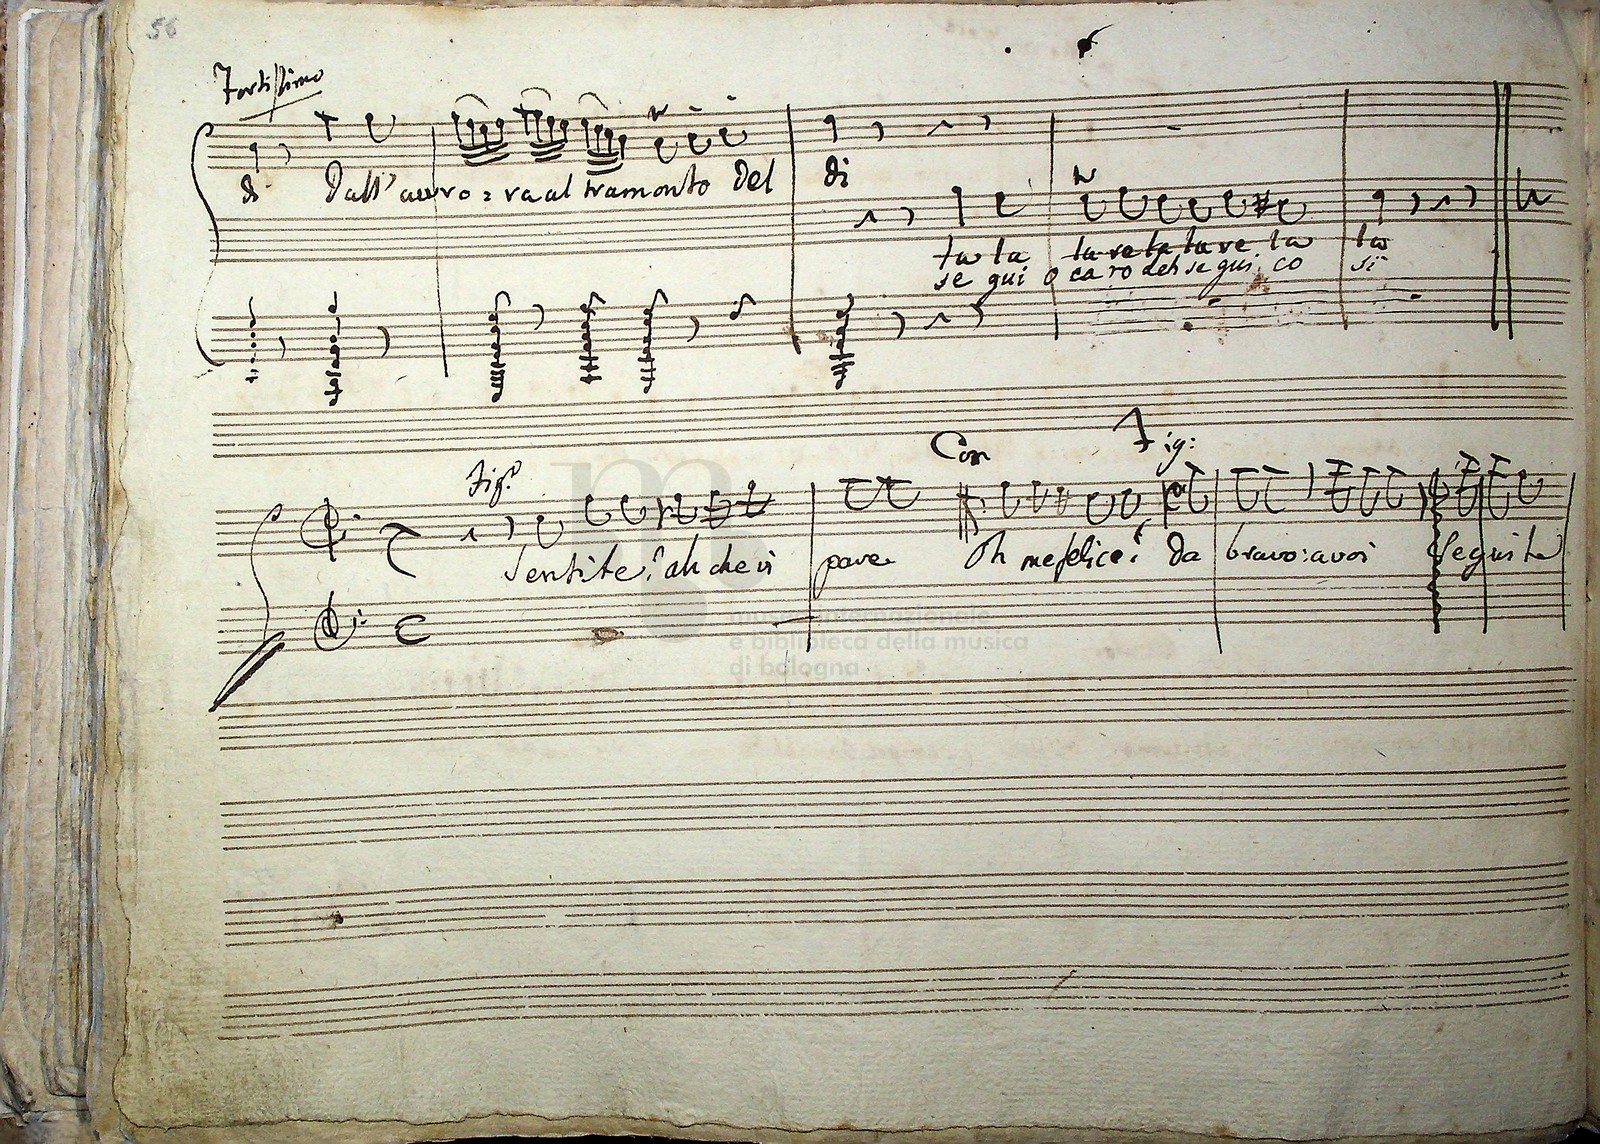 56
Fortissimo
di Dall'auro=ra al tramonto del di
ta ta ta re ta ta re ta ta
segui o caro deh segui co si
Fig.º Con Fig:
Sentite? ah che vi pare Oh me felice! Da bravo: a voi Seguita
museo internazionale
e biblioteca della musica
di bologna